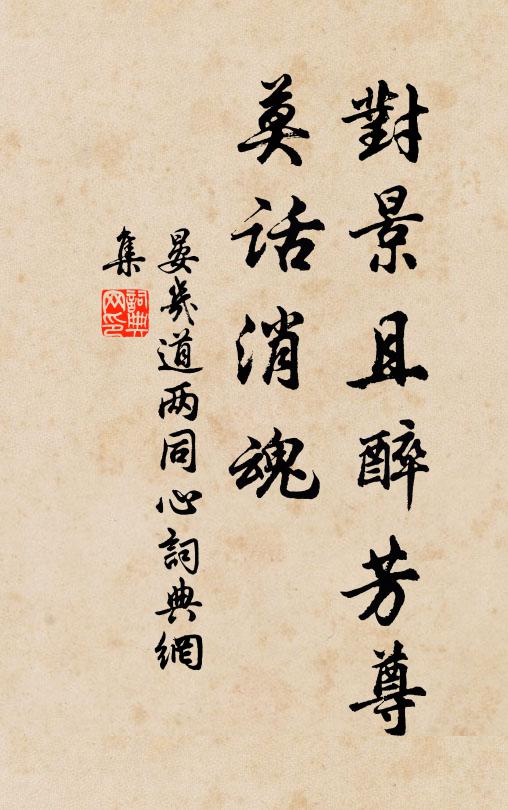 對景且醉芳尊
莫話消魂
晏幾道两同心詞典網
集
詞典网印